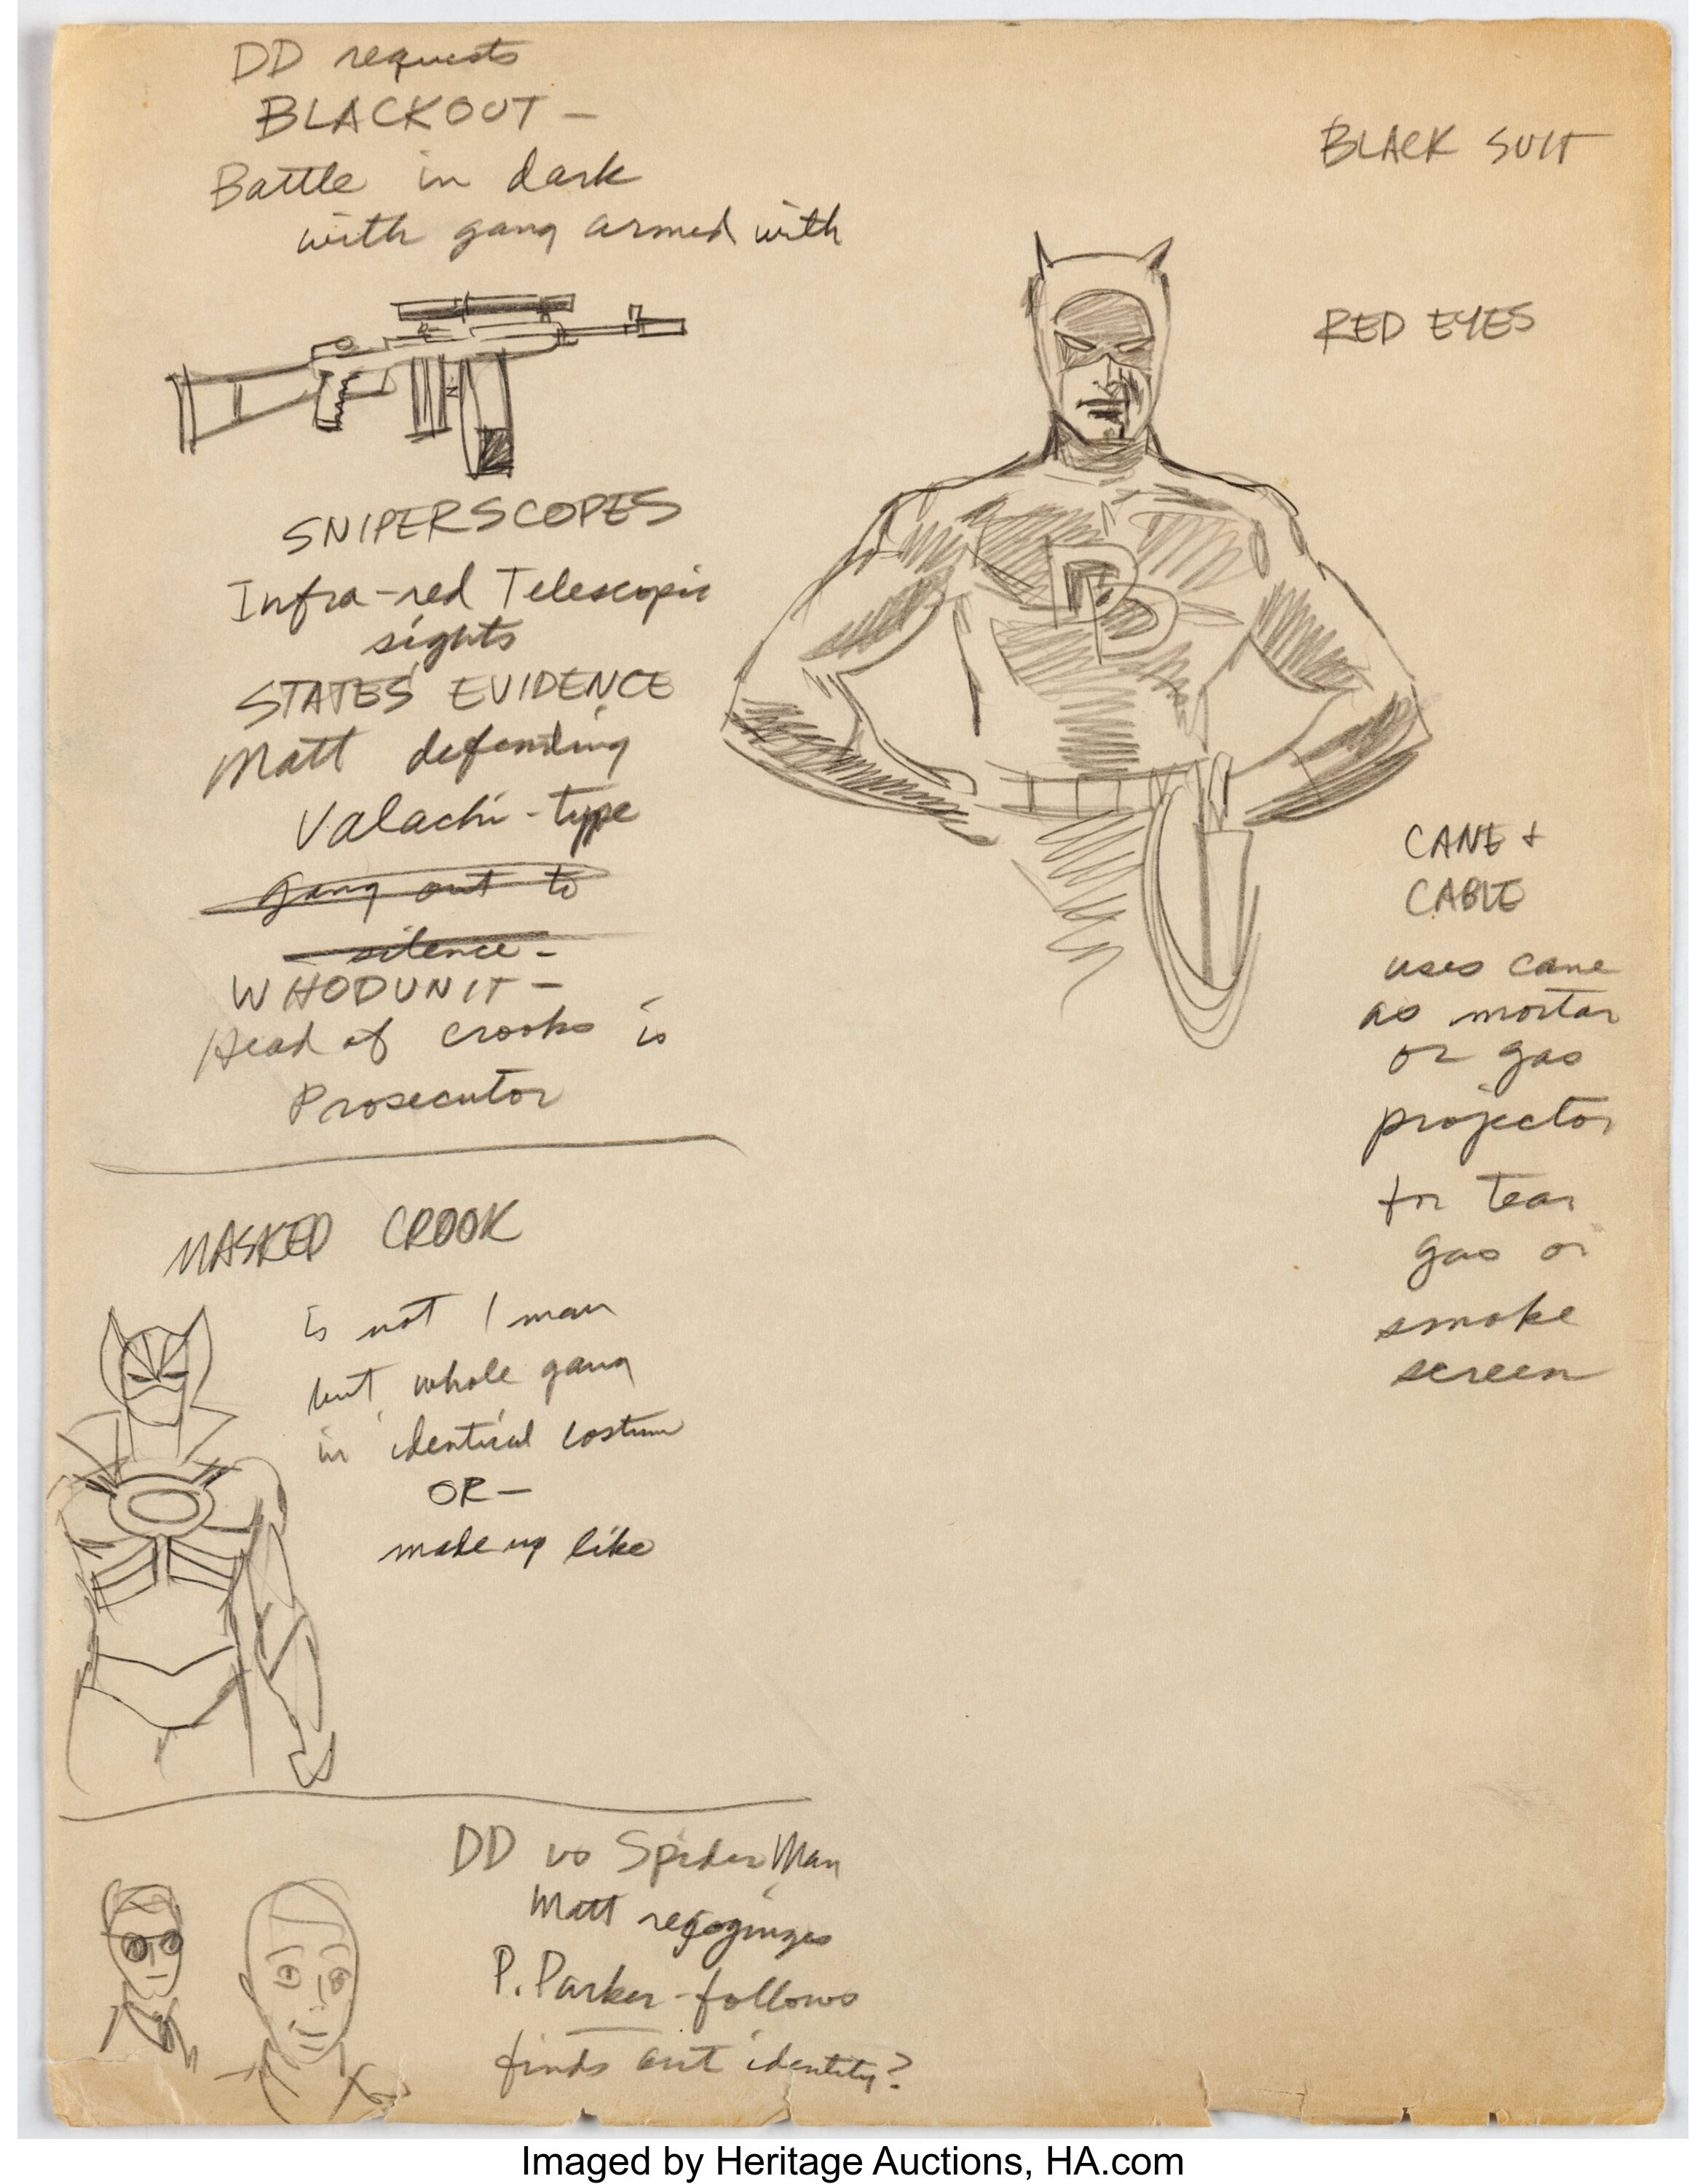 DD requests
BLACKOUT –
Battle in dark
with gang armed with
SNIPERSCOPES
Infra-red Telescopic
sights
STATES EVIDENCE
Matt defending
Valachi-type
gang out to
silence –
WHODUNIT –
Head of crooks is
Prosecutor
MASKED CROOK
is not 1 man
but whole gang
in identical costume
OR –
made up like
DD vs Spider Man
Matt recognizes
P. Parker - follows
finds out identity?
BLACK SUIT
RED EYES
DD
CANE +
CABLE
uses cane
as mortar
or gas
projector
for tear
gas or
smoke
screen
Imaged by Heritage Auctions, HA.com